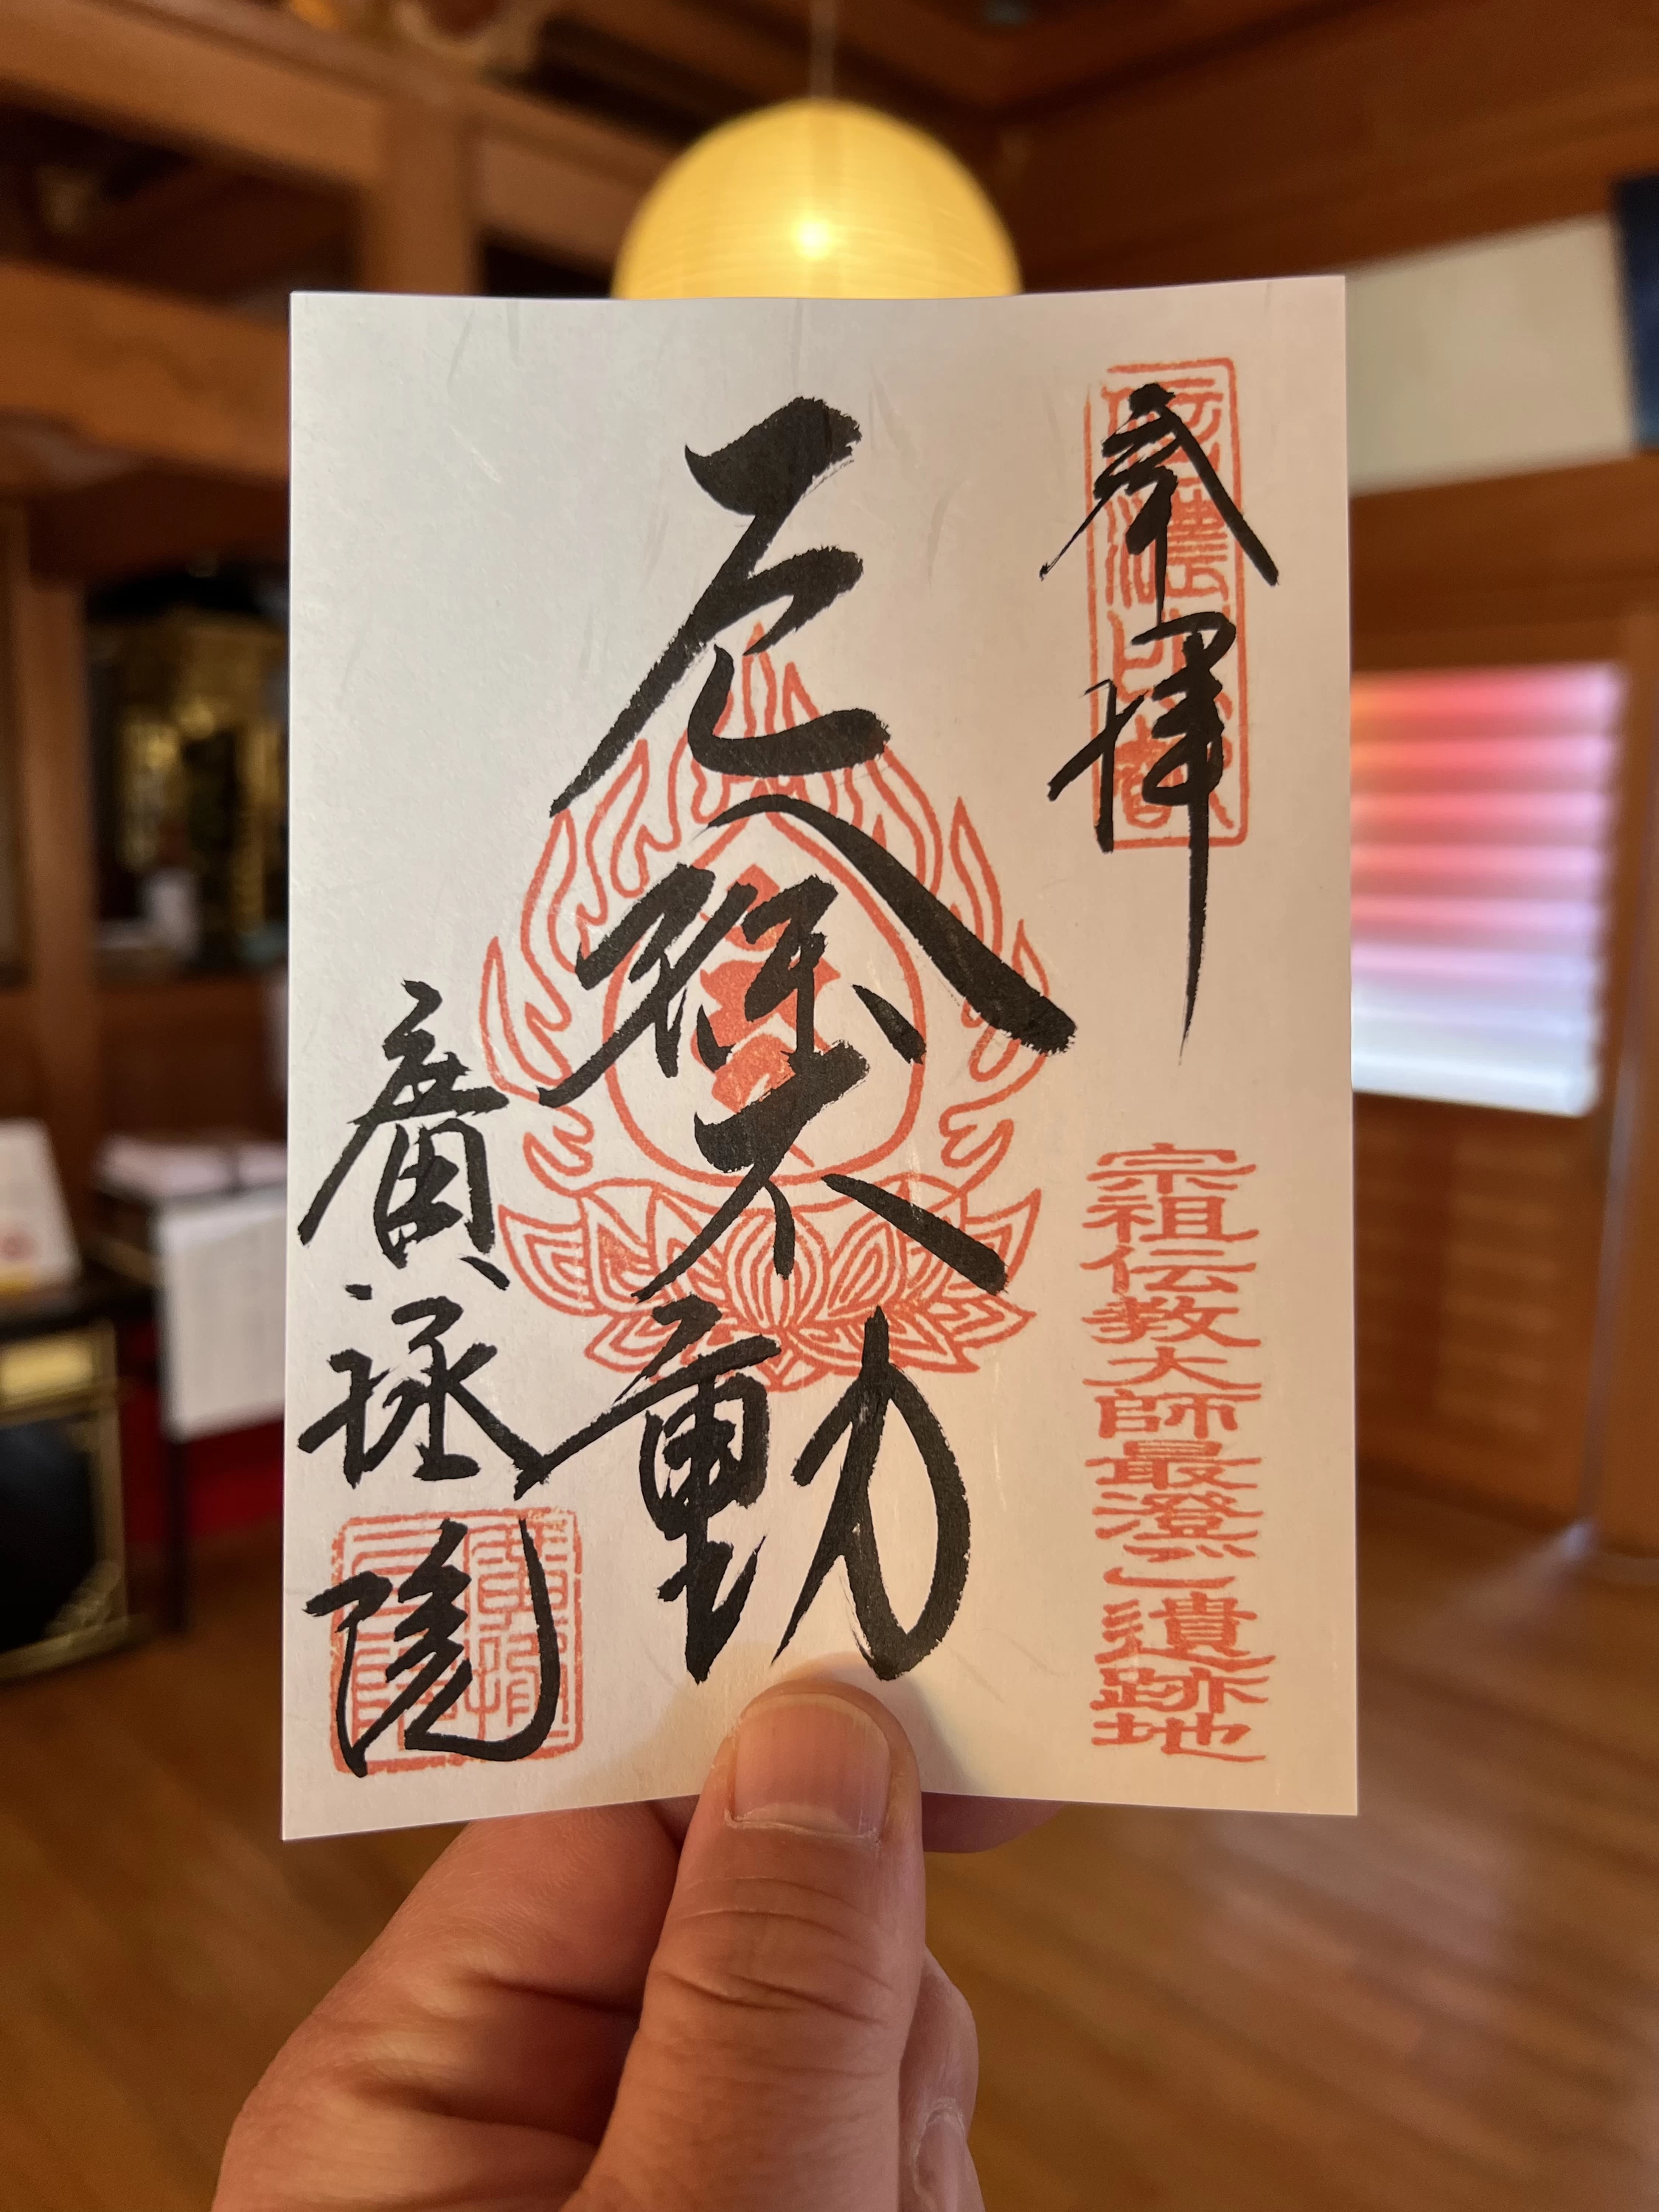 奉拝
信濃比叡
宗祖伝教大師最澄ご遺跡地
厄除不動
廣拯院